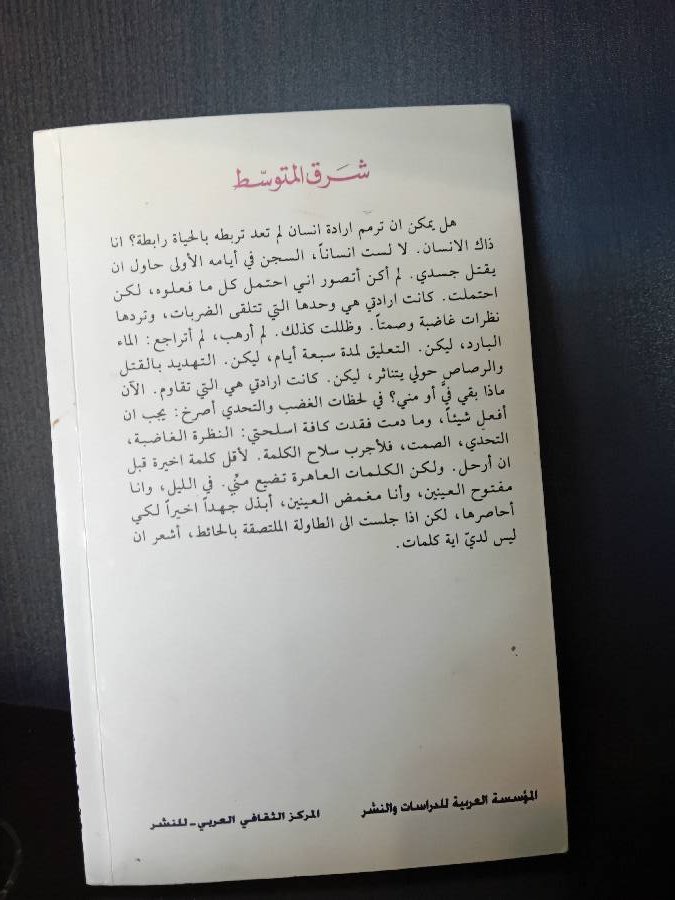 شرق المتوسّط
هل يمكن ان ترمم ارادة انسان لم تعد تربطه بالحياة رابطة؟ انا
ذاك الانسان. لا لست انساناً، السجن في أيامه الأولى حاول ان
يقتل جسدي. لم أكن أتصور اني احتمل كل ما فعلوه، لكن
احتملت. كانت ارادتي هي وحدها التي تتلقى الضربات، وتردها
نظرات غاضبة وصمتاً. وظللت كذلك. لم أرهب، لم أتراجع: الماء
البارد، ليكن. التعليق لمدة سبعة أيام، ليكن. التهديد بالقتل
والرصاص حولي يتناثر، ليكن. كانت ارادتي هي التي تقاوم. الآن
ماذا بقي فيَّ أو مني؟ في لحظات الغضب والتحدي أصرخ: يجب ان
أفعل شيئاً، وما دمت فقدت كافة اسلحتي: النظرة الغاضبة،
التحدي، الصمت، فلأجرب سلاح الكلمة. لأقل كلمة اخيرة قبل
ان أرحل. ولكن الكلمات العاهرة تضيع منّي. في الليل، وانا
مفتوح العينين، وأنا مغمض العينين، أبذل جهداً اخيراً لكي
أحاصرها، لكن اذا جلست الى الطاولة الملتصقة بالحائط، أشعر ان
ليس لديّ اية كلمات.
المؤسسة العربية للدراسات والنشر المركز الثقافي العربي - للنشر